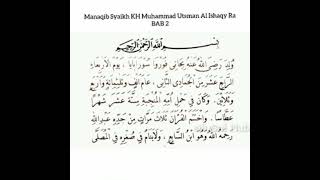 Manaqib Syaikh KH Muhammad Utsman Al Ishaqy Ra
BAB 2
بِسْمِ اللّٰهِ الرَّحْمٰنِ الرَّحِيْمِ
وُلِدَ رَضِيَ اللّٰهُ عَنْهُ بِجَاتِي فُوْرُوْ سُوْرَابَايَا ، يَوْمَ الْأَرْبِعَاءِ
الرَّابِعَ عَشَرَ مِنَ الْجُمَادَى الثَّانِي ، عَامَ أَلْفٍ وَثَلٰثِمِائَةٍ وَأَرْبَعٍ
وَثَلَاثِيْنَ. وَكَانَ فِي حَمْلِ أُمِّهِ الْمُنْجِبَةِ سِتَّةَ عَشَرَ شَهْرًا
عَدَدًا. وَاخْتَتَمَ الْقُرْآنَ ثَلَاثَ مَرَّاتٍ مِنْ جَدِّهِ عَبْدِاللّٰهِ
رَحِمَهُ اللّٰهُ وَهُوَ ابْنُ السَّابِعِ ، وَلَايَنَامُ فِي صُغْرِهِ فِي الْمُصَلَّى